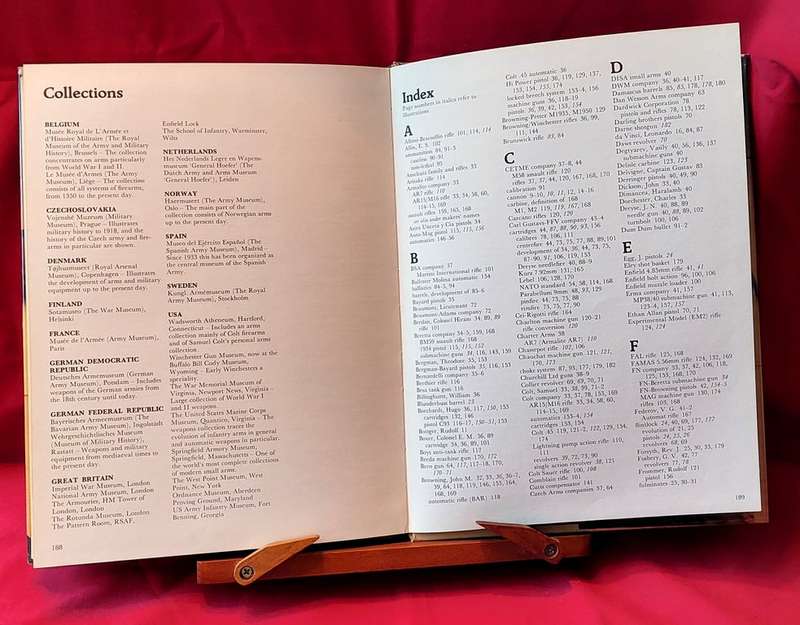 Collections
BELGIUM
Musée Royal de L'Armée et
d'Histoire Militaire (The Royal
Museum of the Army and Military
History), Brussels – The collection
concentrates on arms particularly
from World War I and II.
Le Musée d'Armes (The Army
Museum), Liège – The collection
consists of all systems of firearms,
from 1350 to the present day.
CZECHOSLOVAKIA
Vojenské Muzeum (Military
Museum), Prague – Illustrates
military history to 1918, and the
history of the Czech army and fire-
arms in particular are shown.
DENMARK
Tøjhusmuseet (Royal Arsenal
Museum), Copenhagen – Illustrates
the development of arms and military
equipment up to the present day.
FINLAND
Sotamuseo (The War Museum),
Helsinki
FRANCE
Musée de l'Armée (Army Museum),
Paris
GERMAN DEMOCRATIC
REPUBLIC
Deutsches Armeemuseum (German
Army Museum), Potsdam – Includes
weapons of the German armies from
the 18th century until today.
GERMAN FEDERAL REPUBLIC
Bayerisches Armeemuseum (The
Bavarian Army Museum), Ingolstadt
Wehrgeschichtliches Museum
(Museum of Military History),
Rastatt – Weapons and military
equipment from mediaeval times to
the present day.
GREAT BRITAIN
Imperial War Museum, London
National Army Museum, London
The Armouries, HM Tower of
London, London
The Rotonda Museum, London
The Pattern Room, RSAF,
188
Enfield Lock
The School of Infantry, Warminster,
Wilts
NETHERLANDS
Het Nederlands Leger en Wapen-
museum 'General Hoefer' (The
Dutch Army and Arms Museum
'General Hoefer'), Leiden
NORWAY
Haermuseet (The Army Museum),
Oslo – The main part of the
collection consists of Norwegian arms
up to the present day.
SPAIN
Museo del Ejército Español (The
Spanish Army Museum), Madrid –
Since 1933 this has been organized as
the central museum of the Spanish
Army.
SWEDEN
Kungl. Armémuseum (The Royal
Army Museum), Stockholm
USA
Wadsworth Atheneum, Hartford,
Connecticut – Includes an arms
collection mainly of Colt firearms
and of Samuel Colt's personal arms
collection
Winchester Gun Museum, now at the
Buffalo Bill Cody Museum,
Wyoming – Early Winchesters a
speciality.
The War Memorial Museum of
Virginia, Newport News, Virginia –
Large collection of World War I
and II weapons.
The United States Marine Corps
Museum, Quantico, Virginia – The
weapons collection traces the
evolution of infantry arms in general
and automatic weapons in particular.
Springfield Armory Museum,
Springfield, Massachusetts – One of
the world's most complete collections
of modern small arms.
The West Point Museum, West
Point, New York
Ordnance Museum, Aberdeen
Proving Ground, Maryland
US Army Infantry Museum, Fort
Benning, Georgia
Index
Page numbers in italics refer to
illustrations
A
Albini-Braendlin rifle 101, 114, 114
Allin, E. S. 102
ammunition 84, 91-5
caseless 90-91
Anschutz family and rifles 33
Arisaka rifle 114
Armalite company 33
AR7 rifle 110
AR15/M16 rifle 33, 54, 58, 60,
114-15, 169
assault rifles 159, 165, 168
Astra Unceta y Cia pistols 34
Auto-Mag pistol 115, 115, 156
automatics 146-56
B
BSA company 37
Martini International rifle 101
Ballester Molina automatic 154
ballistics 84-5, 94
barrels, development of 83-6
Bayard pistols 35
Beaumont, Lieutenant 72
Beaumont-Adams company 72
Berdan, Colonel Hiram 34, 89, 89
rifle 101
Beretta company 34-5, 159, 168
BM59 assault rifle 168
1934 pistol 115, 115, 152
submachine guns 34, 116, 143, 159
Bergman, Theodore 35, 153
Bergman-Bayard pistols 35, 116, 153
Bernardelli company 35-6
Berthier rifle 116
Besa tank gun 116
Billinghurst, William 36
Blunderbuss barrel 23
Borchardt, Hugo 36, 117, 150, 153
cartridges 132, 146
pistol C93 116-17, 150-51, 153
Bodiger, Rudolf 11
Boxer, Colonel E. M. 36, 89
cartridge 34, 36, 89, 101
Boys anti-tank rifle 117
Breda machine gun 170, 172
Bren gun 64, 117, 117-18, 170,
170-71
Browning, John M. 32, 33, 36, 36-7,
39, 64, 118, 119, 146, 155, 164,
168, 169
automatic rifle (BAR) 118
Colt .45 automatic 36
Hi Power pistol 36, 119, 129, 137,
153, 154, 155, 174
locked breech system 153-4, 156
machine guns 36, 118-19
pistols 36, 39, 42, 153, 154
Browning-Petter M1935, M1950 129
Browning-Winchester rifles 36, 99,
111, 144
Brunswick rifle 83, 84
C
CETME company 37-8, 44
M58 assault rifle 120
rifles 37, 37, 44, 120, 167, 168, 170
calibration 91
cannon 9-10, 10, 11, 12, 14-16
carbine, definition of 168
M1, M2 119, 119, 167, 168
Carcano rifles 120, 120
Carl Gustafs-FFV company 43-4
cartridges 44, 87, 88, 90, 93, 156
calibres 78, 106, 111
centrefire 44, 73, 75, 77, 88, 89, 101
development of 34, 36, 44, 73, 75,
87-90, 97, 106, 119, 153
Dreyse needlefire 40, 88-9
Kurz 7.92mm 131, 165
Lebel 106, 128, 170
NATO standard 54, 58, 114, 168
Parabellum 9mm 48, 93, 129
pinfire 44, 73, 75, 88
rimfire 73, 75, 77, 90
Cei-Rigotti rifle 164
Charlton machine gun 120-21
rifle conversion 120
Charter Arms 38
AR7 (Armalite AR7) 110
Chassepot rifle 102, 106
Chauchat machine gun 121, 121,
170, 173
choke system 87, 93, 177, 179, 182
Churchill Ltd guns 38-9
Collier revolver 69, 69, 70, 71
Colt, Samuel 33, 38, 59, 71-2
Colt company 33, 37, 78, 153, 169
AR15/M16 rifle 33, 54, 58, 60,
114-15, 169
automatics 153-4, 154
cartridges 153, 154
Colt .45 119, 121-2, 122, 129, 154,
174
Lightning pump action rifle 110,
111
revolvers 39, 72, 73, 90
single action revolver 38, 121
Colt Sauer rifle 100, 108
Comblain rifle 101
Cutts compensator 141
Czech Arms companies 37, 64
D
DISA small arms 40
DWM company 36, 40-41, 117
Damascus barrels 85, 85, 178, 178, 180
Dan Wesson Arms company 63
Dardwick Corporation 78
pistols and rifles 78, 113, 122
Darling brothers pistols 70
Darne shotgun 182
da Vinci, Leonardo 16, 84, 87
Daws revolver 70
Degtyarev, Vasily 40, 56, 136, 137
submachine guns 40
Delisle carbine 123, 123
Delvigne, Captain Gustav 83
Derringer pistols 40, 49, 90
Dickson, John 33, 40
Dimancea, Haralamb 40
Dorchester, Charles 33
Dreyse, J. N. 40, 88, 89
needle gun 40, 88, 89, 102
turnbolt 100, 106
Dum Dum bullet 91-2
E
Egg, J. pistols 24
Eley shot basket 179
Enfield 4.85mm rifle 41, 41
Enfield bolt action 96, 100, 106
Enfield muzzle loader 100
Erma company 41, 157
MP38/40 submachine gun 41, 115,
123-4, 157, 157
Ethan Allan pistol 70, 71
Experimental Model (EM2) rifle
124, 124
F
FAL rifle 125, 168
FAMAS 5.56mm rifle 124, 132, 169
FN company 33, 37, 42, 106, 118,
125, 135, 168, 170
FN-Beretta submachine gun 34
FN-Browning pistols 42, 154-5
MAG machine gun 130, 174
rifles 105, 168
Federov, V. G. 41-2
Automat rifle 167
flintlock 24, 40, 69, 177, 177
evolution of 21, 25
pistols 24, 25, 26
revolvers 68, 69
Forsyth, Rev. J. 25, 30, 35, 179
Fosbery, G. V. 42, 77
revolvers 77, 78
Frommer, Rudolf 121
pistol 156
fulminates 25, 30-31
189